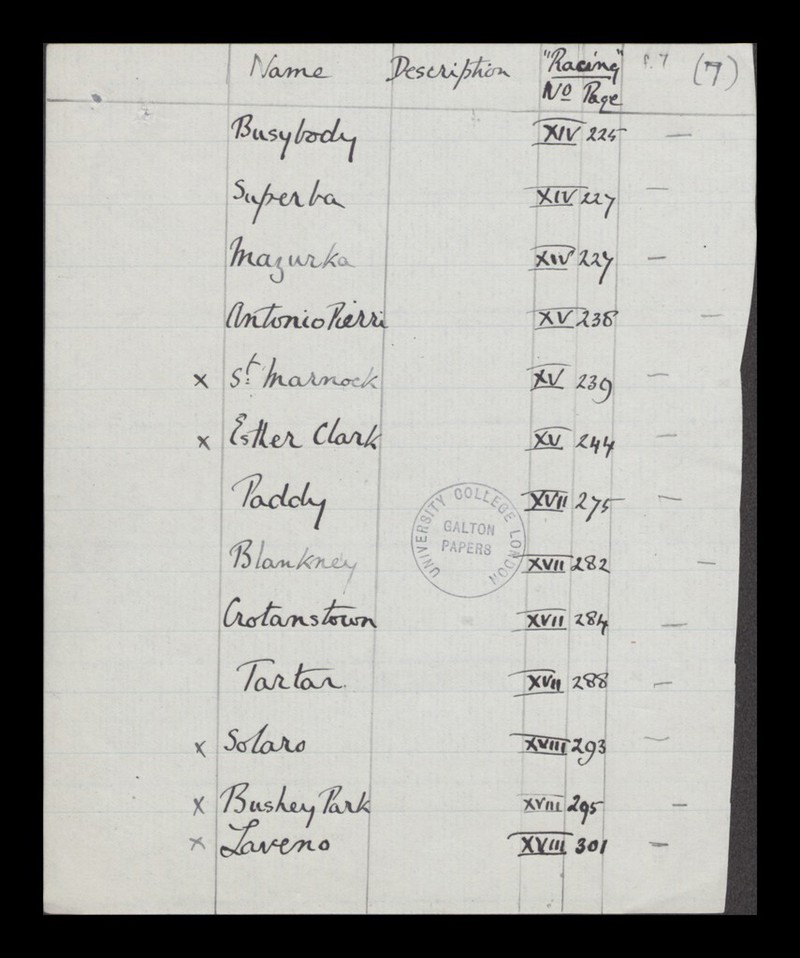 Name Description "Racing" P.7 (7)
No Page
Busybody XIV 225 —
Superba XIV 227 —
Mazurka XIV 227 —
Antonio Pierri XV 238 —
x St. Marnock XV 239 —
x Esther Clark XV 244 —
Paddy XVII 275 —
UNIVERSITY COLLEGE LONDON
GALTON
PAPERS
Blankney XVII 282 —
Crotanstown XVII 284 —
Tartar XVII 288 —
x Solaro XVIII 293 —
x Bushey Park XVIII 295 —
x Laveno XVIII 301 —